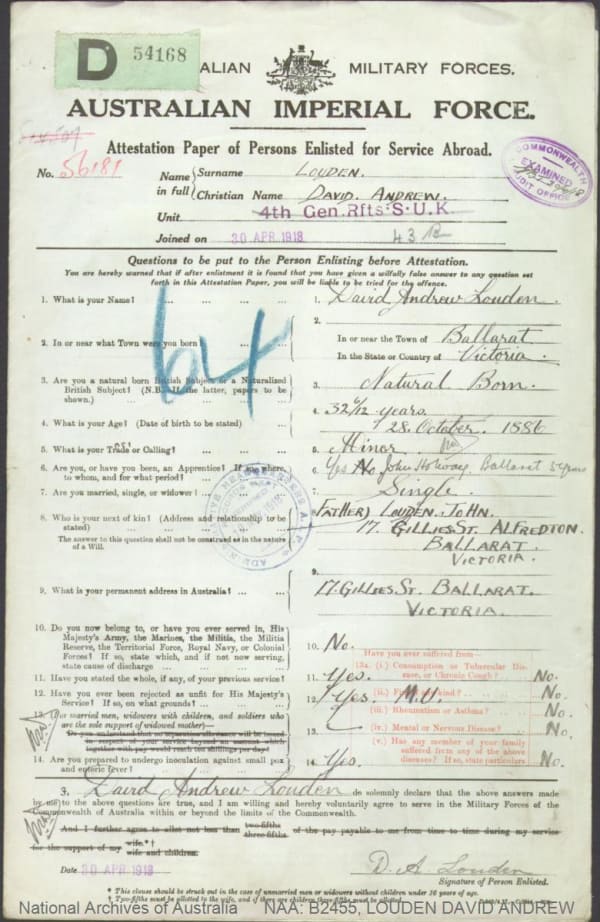 D 54168
ALIAN MILITARY FORCES.
AUSTRALIAN IMPERIAL FORCE.
Attestation Paper of Persons Enlisted for Service Abroad.
No. 56181
Name in full { Surname LOUDEN.
Christian Name DAVID ANDREW.
Unit 4th Gen. Rfts. S.U.K
Joined on 30 APR 1918
COMMONWEALTH EXAMINED AUDIT OFFICE
Questions to be put to the Person Enlisting before Attestation.
You are hereby warned that if after enlistment it is found that you have given a wilfully false answer to any question set
forth in this Attestation Paper, you will be liable to be tried for the offence.
64
1. What is your Name? ... 1. David Andrew Louden.
2. In or near what Town were you born 2. In or near the Town of Ballarat
In the State or Country of Victoria.
3. Are you a natural born British Subject or a Naturalized
British Subject? (N.B.—If the latter, papers to be
shown.) 3. Natural Born.
4. What is your Age? (Date of birth to be stated) 4. 32 6/12 years.
28 October. 1886
5. What is your Trade or Calling? 5. Minor
6. Are you, or have you been, an Apprentice? If so where,
to whom, and for what period? 6. Yes No John Ballarat 5 years
7. Are you married, single, or widower? 7. Single.
8. Who is your next of kin? (Address and relationship to be
stated) 8. (FATHER) LOUDEN. JOHN.
17. GILLIES ST. ALFREDTON.
BALLARAT.
VICTORIA.
The answer to this question shall not be construed as in the nature
of a Will.
9. What is your permanent address in Australia? 9. 17. GILLIES ST. BALLARAT.
VICTORIA.
10. Do you now belong to, or have you ever served in, His
Majesty's Army, the Marines, the Militia, the Militia
Reserve, the Territorial Force, Royal Navy, or Colonial
Forces? If so, state which, and if not now serving,
state cause of discharge 10. No.
11. Have you stated the whole, if any, of your previous service? 11. Yes.
12. Have you ever been rejected as unfit for His Majesty's
Service? If so, on what grounds? 12. Yes.
Have you ever suffered from—
13a. (i.) Consumption or Tubercular Disease, or Chronic Cough? No.
(ii.) Fits of any kind? No.
(iii.) Rheumatism or Asthma? No.
(iv.) Mental or Nervous Disease? No.
(v.) Has any member of your family
suffered from any of the above
diseases? If so, state particulars No.
13. (For married men, widowers with children, and soldiers who
are the sole support of widowed mother)—
Do you understand that no separation allowance will be issued
in respect of your service beyond an amount which
together with pay would reach ten shillings per day?
14. Are you prepared to undergo inoculation against small pox
and enteric fever? 14. Yes.
I, David Andrew Louden do solemnly declare that the above answers made
by me to the above questions are true, and I am willing and hereby voluntarily agree to serve in the Military Forces of the
Commonwealth of Australia within or beyond the limits of the Commonwealth.
And I further agree to allot not less than two-fifths three-fifths of the pay payable to me from time to time during my service
for the support of my wife.*† wife and children.
Date 30 APR 1918
D. A. Louden
Signature of Person Enlisted.
* This clause should be struck out in the case of unmarried men or widowers without children under 16 years of age.
† Two-fifths must be allotted to the wife, and if there are children three-fifths must be allotted.
National Archives of Australia NAA: B2455, LOUDEN DAVID ANDREW